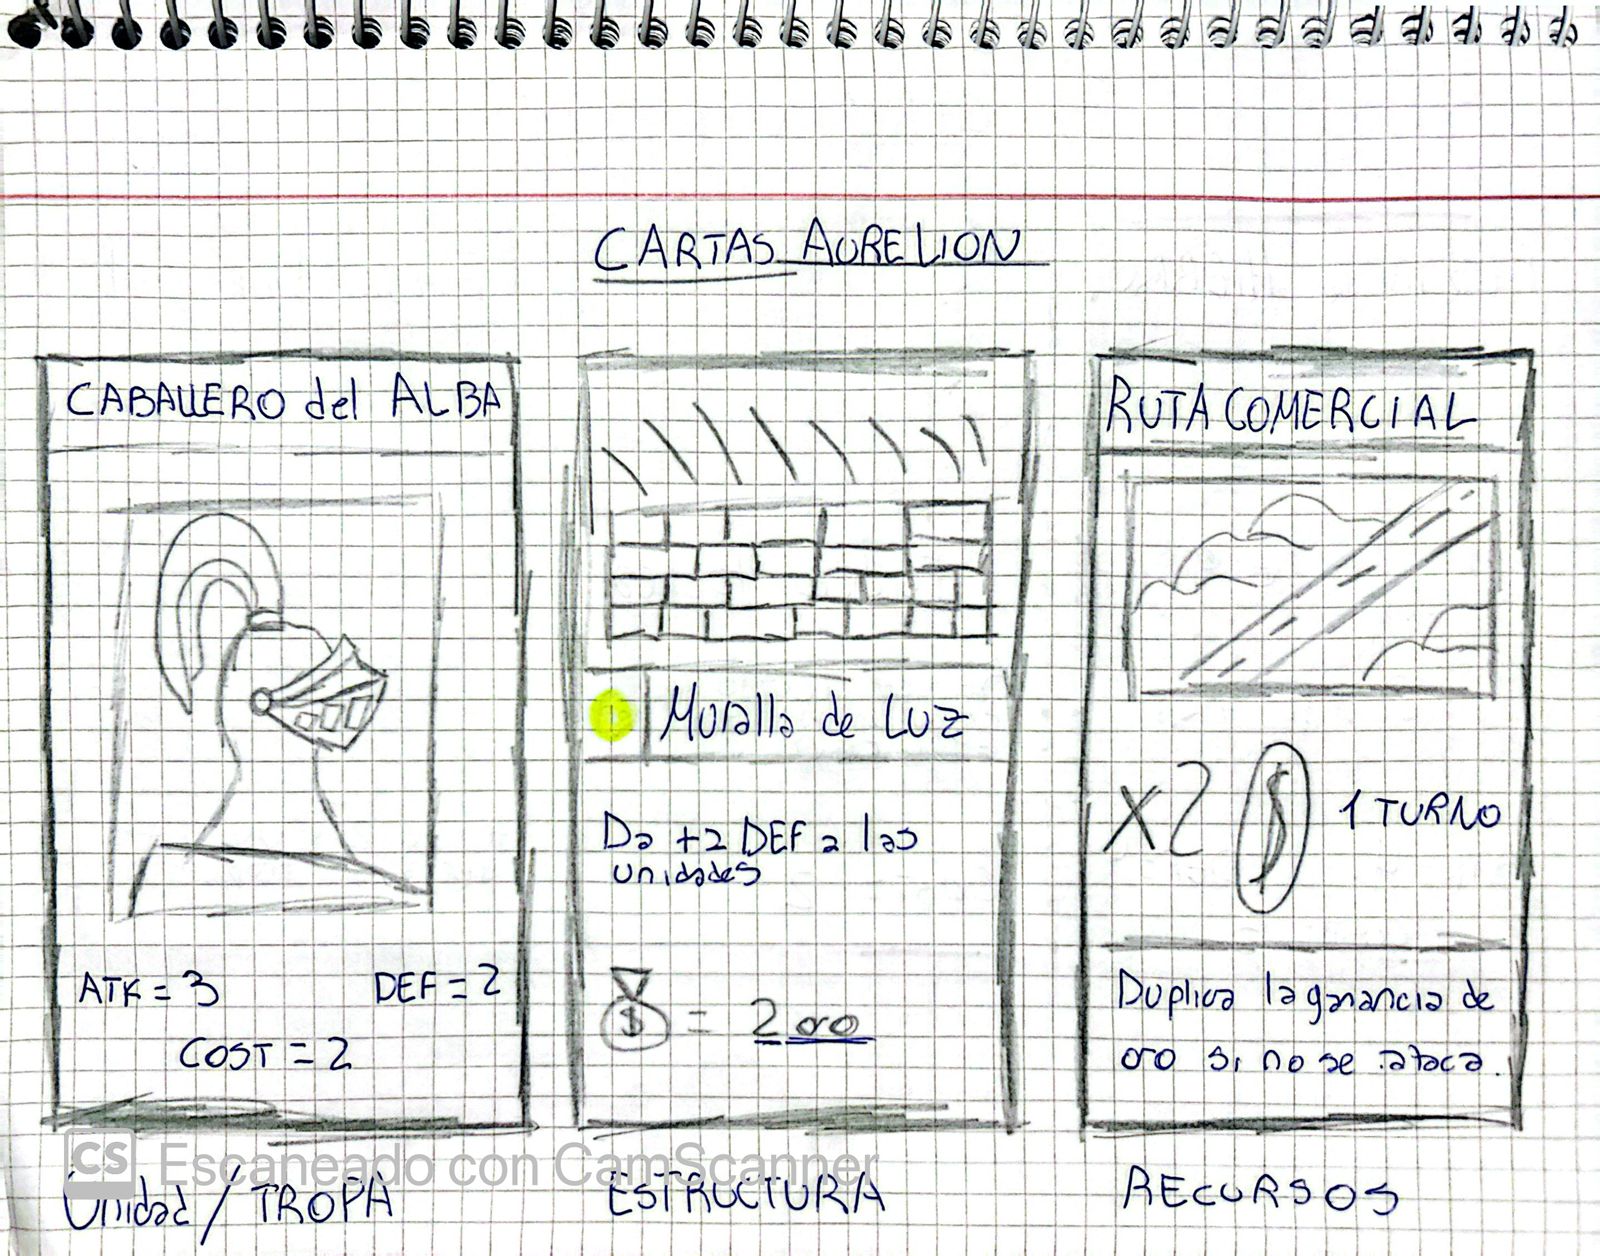 CARTAS AURELION
CABALLERO del ALBA
ATK = 3 DEF = 2
COST = 2
Unidad / TROPA
Muralla de LUZ
Da +2 DEF a las
unidades
$ = 2 oro
ESTRUCTURA
RUTA COMERCIAL
X2 $ 1 TURNO
Duplica la ganancia de
oro si no se ataca.
RECURSOS
CS Escaneado con CamScanner